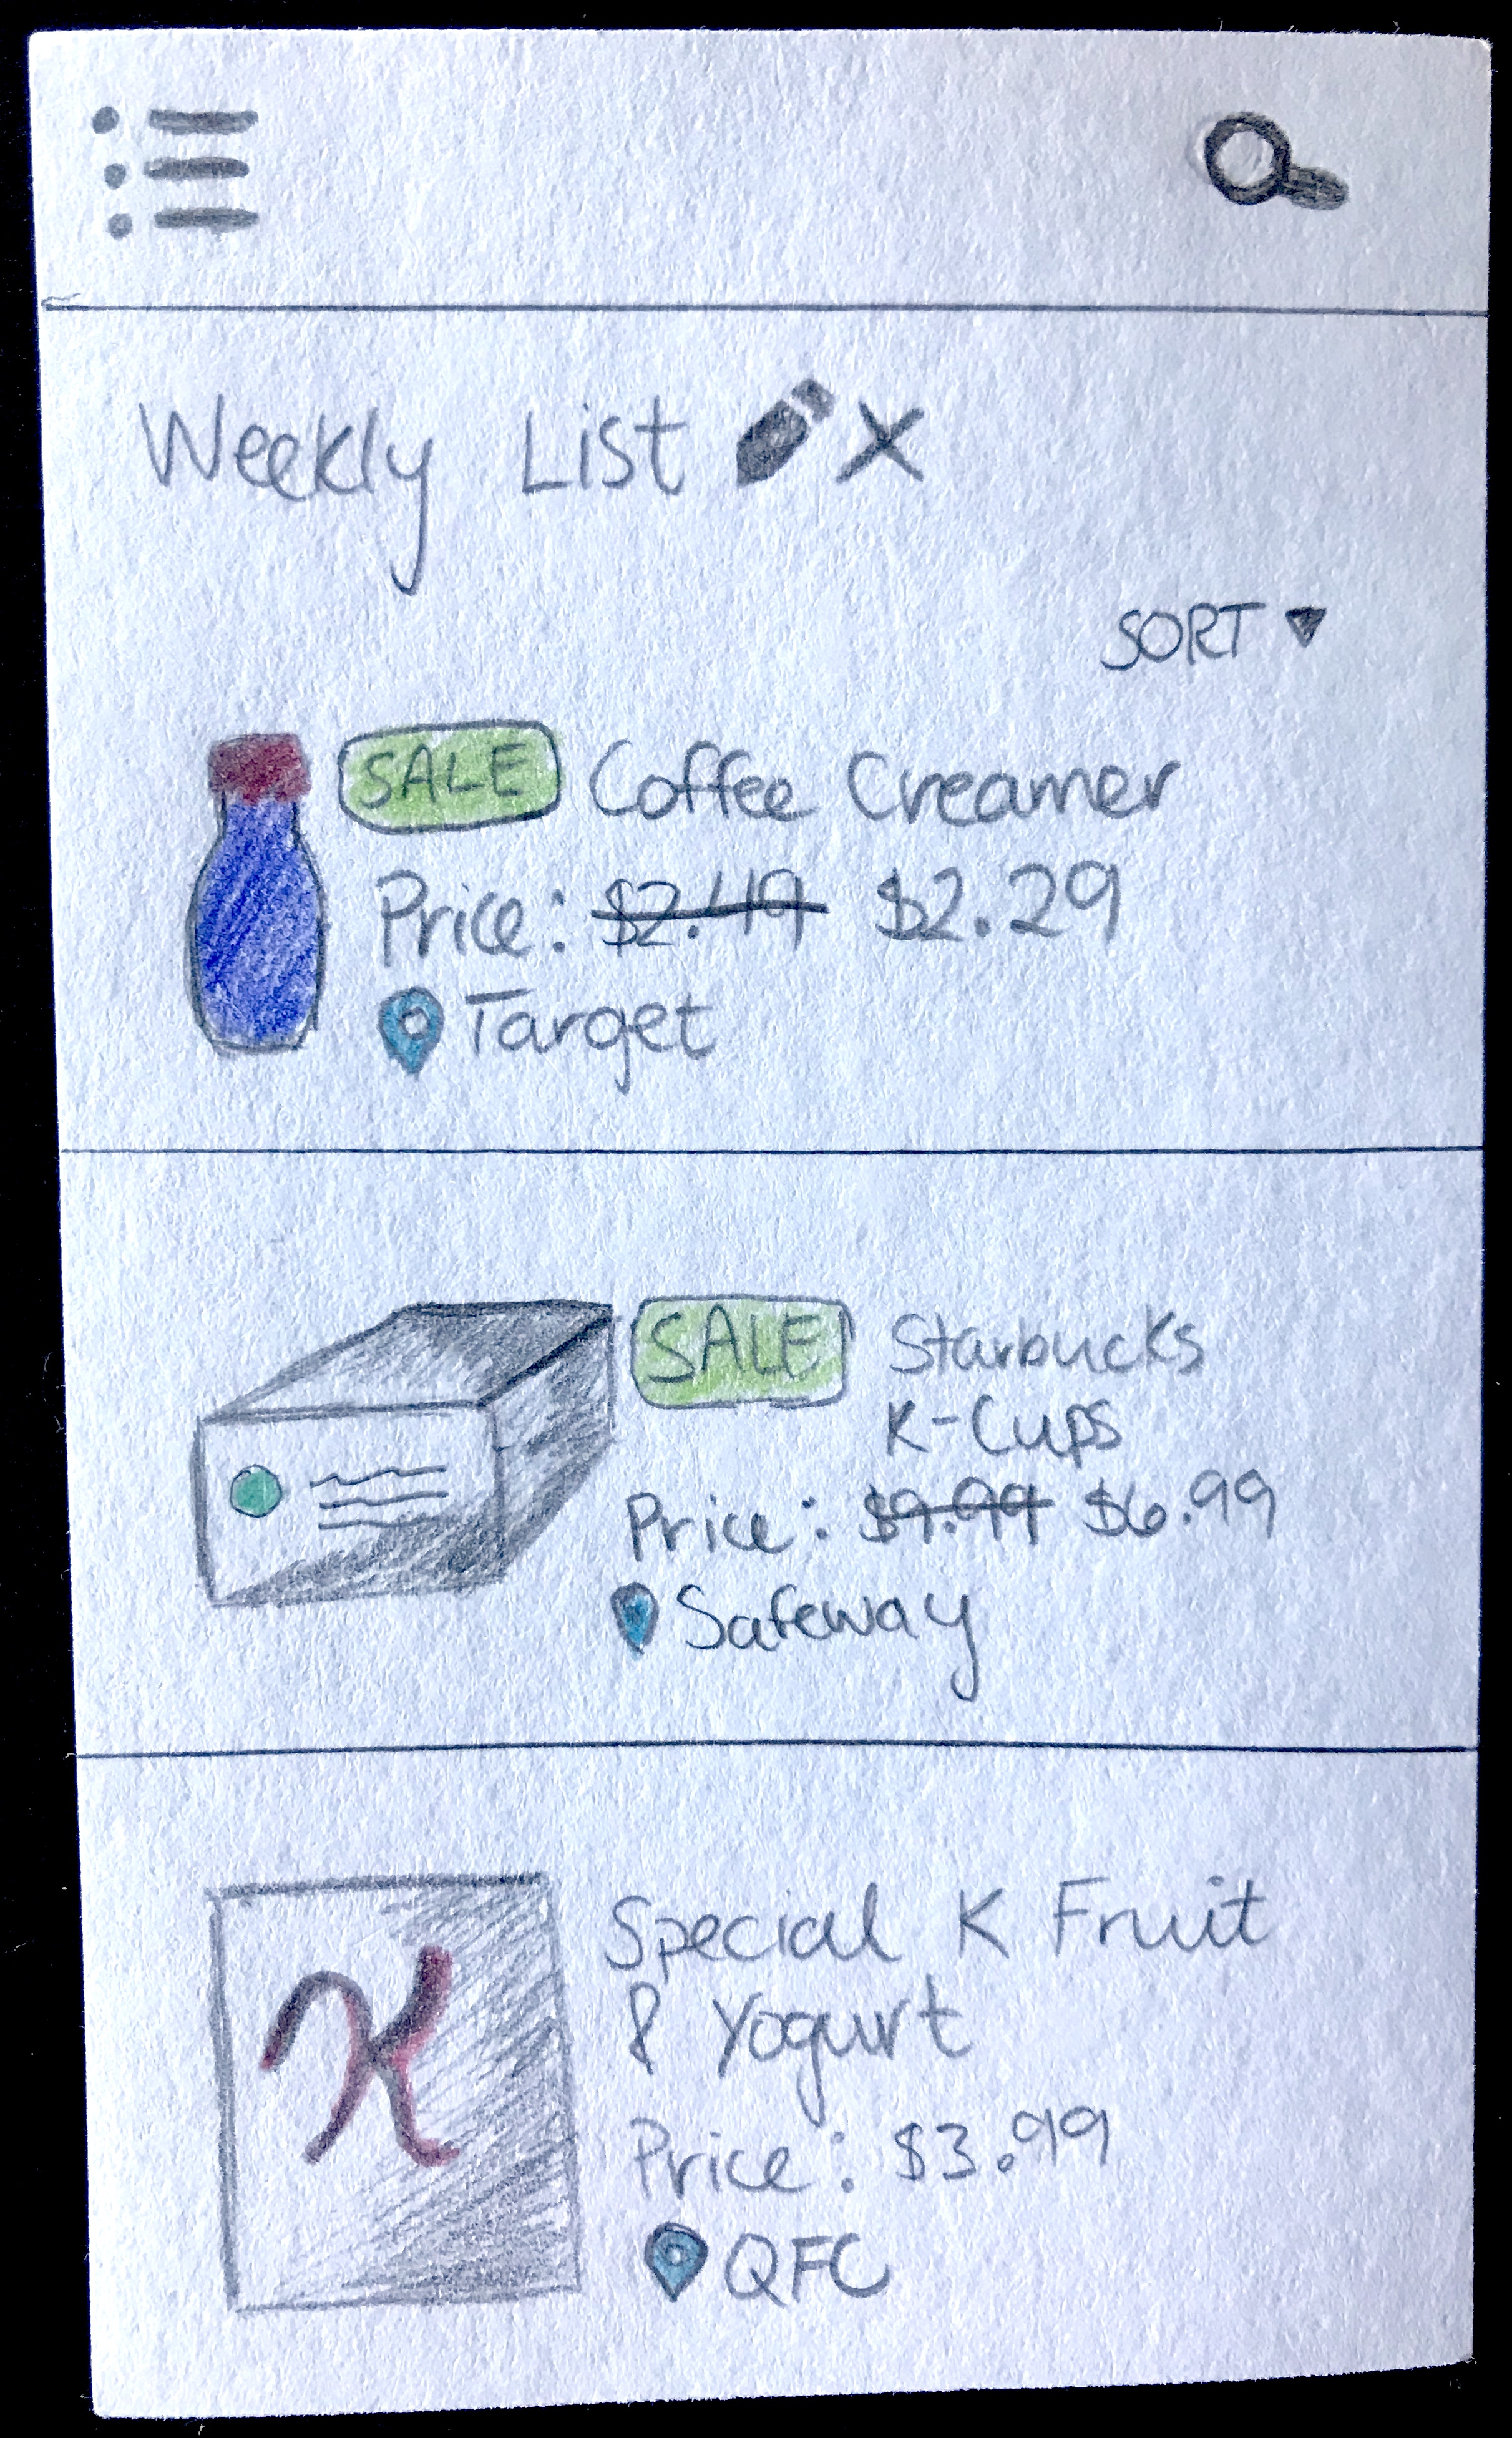 Weekly List X
SORT
SALE Coffee Creamer
Price: $2.49 $2.29
Target
SALE Starbucks
K-Cups
Price: $9.99 $6.99
Safeway
K
Special K Fruit
& Yogurt
Price: $3.99
QFC